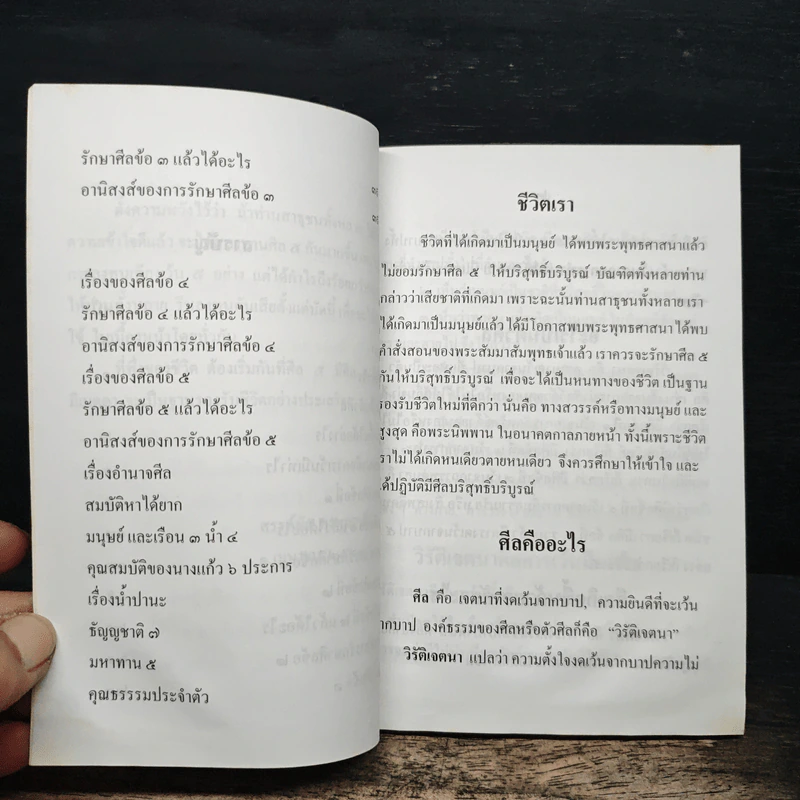 รักษาศีลข้อ ๓ แล้วได้อะไร
อานิสงส์ของการรักษาศีลข้อ ๓
เรื่องของศีลข้อ ๔
รักษาศีลข้อ ๔ แล้วได้อะไร
อานิสงส์ของการรักษาศีลข้อ ๔
เรื่องของศีลข้อ ๕
รักษาศีลข้อ ๕ แล้วได้อะไร
อานิสงส์ของการรักษาศีลข้อ ๕
เรื่องอำนาจศีล
สมบัติหาได้ยาก
มนุษย์ และเรือน ๓ น้ำ ๔
คุณสมบัติของนางแก้ว ๖ ประการ
เรื่องน้ำปานะ
ธัญญชาติ ๗
มหาทาน ๕
คุณธรรรมประจำตัว
ชีวิตเรา
ชีวิตที่ได้เกิดมาเป็นมนุษย์ ได้พบพระพุทธศาสนาแล้ว
ไม่ยอมรักษาศีล ๕ ให้บริสุทธิ์บริบูรณ์ บัณฑิตทั้งหลายท่าน
กล่าวว่าเสียชาติที่เกิดมา เพราะฉะนั้นท่านสาธุชนทั้งหลาย เรา
ได้เกิดมาเป็นมนุษย์แล้ว ได้มีโอกาสพบพระพุทธศาสนา ได้พบ
คำสั่งสอนของพระสัมมาสัมพุทธเจ้าแล้ว เราควรจะรักษาศีล ๕
กันให้บริสุทธิ์บริบูรณ์ เพื่อจะได้เป็นหนทางของชีวิต เป็นฐาน
รองรับชีวิตใหม่ที่ดีกว่า นั่นคือ ทางสวรรค์หรือทางมนุษย์ และ
สูงสุด คือพระนิพพาน ในอนาคตกาลภายหน้า ทั้งนี้เพราะชีวิต
ราไม่ได้เกิดหนเดียวตายหนเดียว จึงควรศึกษาให้เข้าใจ และ
ได้ปฏิบัติมีศีลบริสุทธิ์บริบูรณ์
ศีลคืออะไร
ศีล คือ เจตนาที่งดเว้นจากบาป, ความยินดีที่จะเว้น
ากบาป องค์ธรรมของศีลหรือตัวศีลก็คือ “วิรัติเจตนา”
วิรัติเจตนา แปลว่า ความตั้งใจงดเว้นจากบาปความไม่